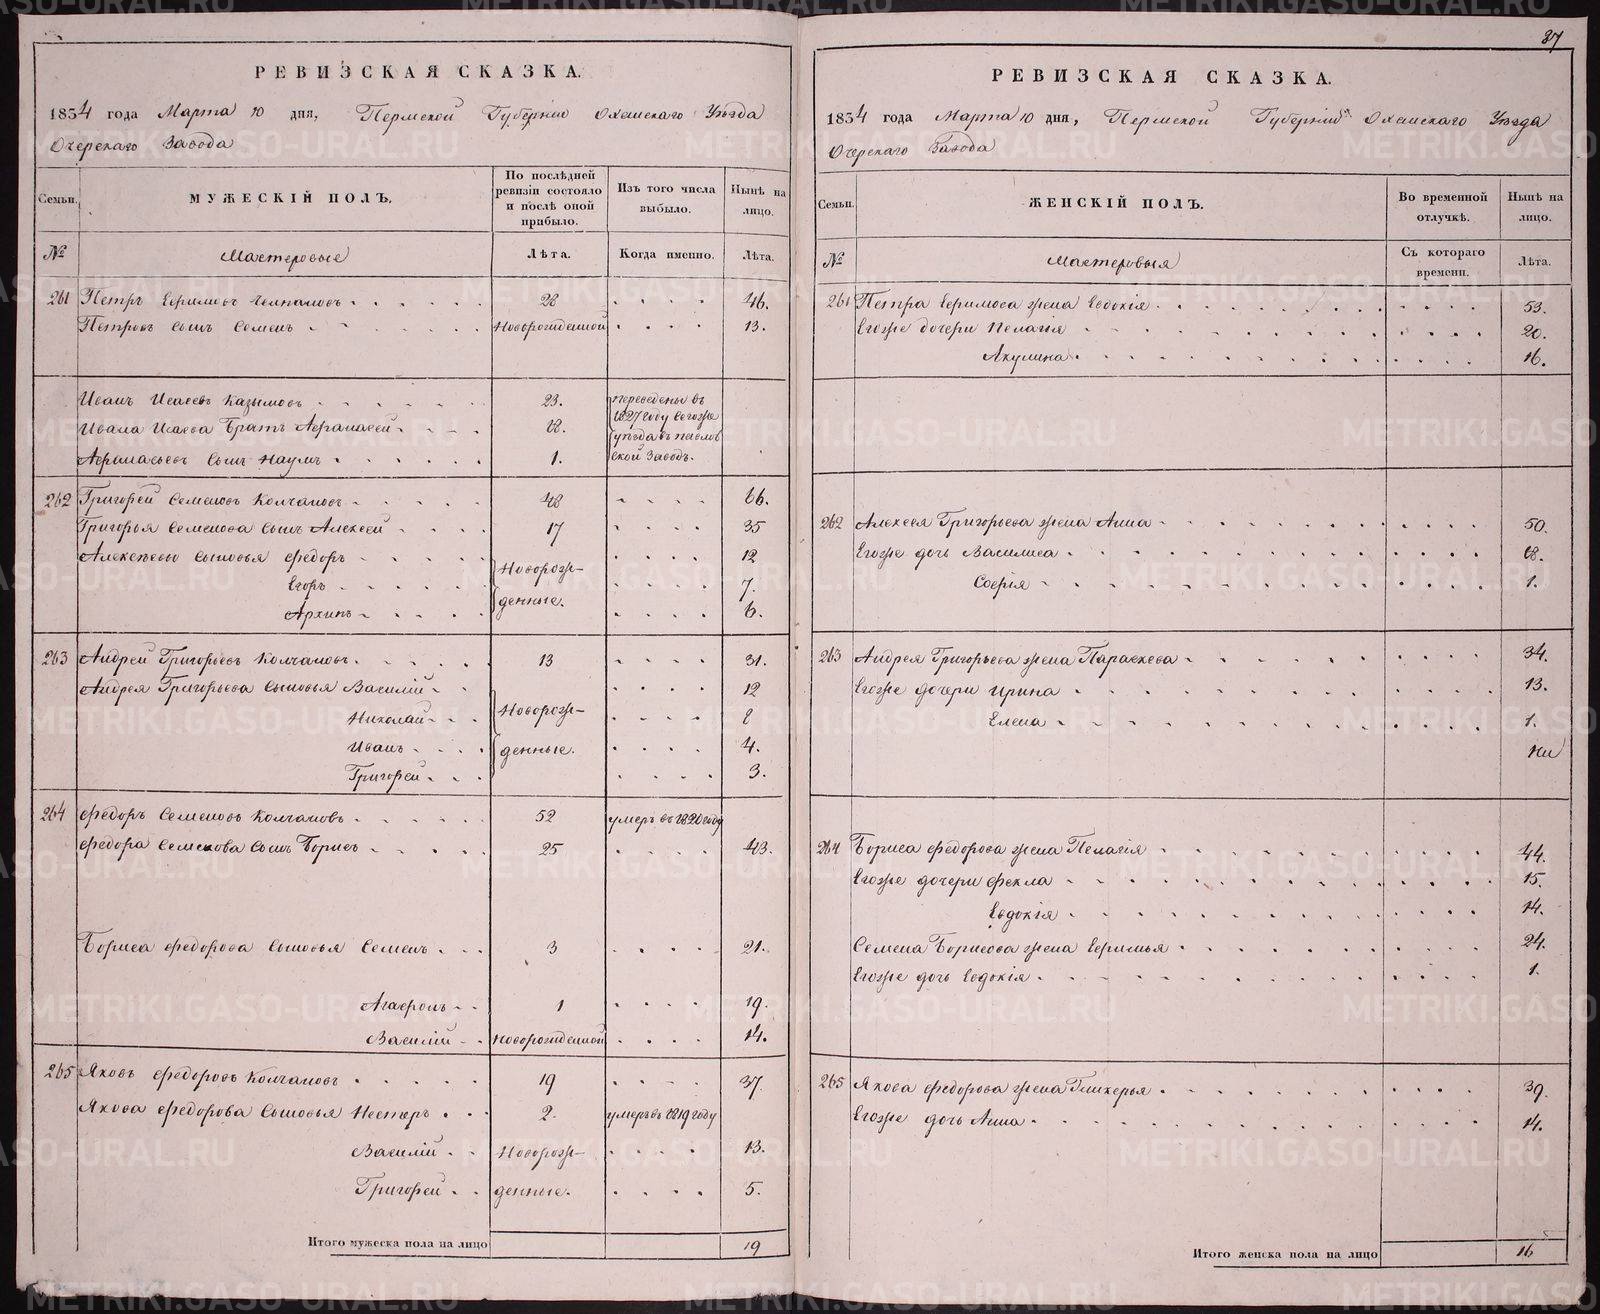 87
РЕВИЗСКАЯ СКАЗКА.
1834 года Марта 10 дня, Пермской Губернiи Оханскаго Уѣзда
Очерскаго Завода
Семьи.
МУЖЕСКІЙ ПОЛЪ.
По послѣдней ревизіи состояло и послѣ оной прибыло.
Изъ того числа выбыло.
Нынѣ на лицо.
№ Мастеровые Лѣта. Когда именно. Лѣта.
261 Петръ Ефимовъ 28 46.
Петровъ сынъ Семенъ Новорожденной 13.
Иванъ Исаевъ Казымовъ 23. переведены въ
Ивана Исаева братъ Афанасей 18. 1827 году тогоже
уѣзда въ Павлов
Афанасьевъ сынъ Наумъ 1. ской Заводъ.
262 Григорей Семеновъ Колчановъ 48 66.
Григорья Семенова сынъ Алексей 17 35
Алексѣевы сыновья Федоръ Новорож- 12
Егоръ 7.
Архипъ денные. 6.
263 Андрей Григорьевъ Колчановъ 13 31.
Андрея Григорьева сыновья Василій 12
Николай Новорож- 8
Иванъ денные. 4.
Григорей 3.
264 Федоръ Семеновъ Колчановъ 52 умеръ въ 1820 году
Федора Семенова сынъ Борисъ 25 43.
Бориса Федорова сыновья Семенъ 3 21.
Агафонъ 1 19.
Василій Новорожденной 14.
265 Яковъ Федоровъ Колчановъ 19 37.
Якова Федорова сыновья Нестеръ 2. умеръ въ 1819 году
Василій Новорож- 13.
Григорей денные. 5.
Итого мужеска пола на лицо 19
РЕВИЗСКАЯ СКАЗКА.
1834 года Марта 10 дня, Пермской Губернiи Оханскаго Уѣзда
Очерскаго Завода
Семьи.
ЖЕНСКІЙ ПОЛЪ.
Во временной отлучкѣ.
Нынѣ на лицо.
№ Мастеровыя Съ котораго времени. Лѣта.
261 Петра Ефимова жена Евдокія 53.
Егоже дочери Пелагія 20.
Акулина 16.
262 Алексея Григорьева жена Анна 50.
Егоже дочь Василиса 18.
Софія 1.
263 Андрея Григорьева жена Параскева 34.
Егоже дочери Ирина 13.
Елена 1.
264 Бориса Федорова жена Пелагія 44.
Егоже дочери Фекла 15.
Евдокія 14.
Семена Борисова жена Ефимья 24.
Егоже дочь Евдокія 1.
265 Якова Федорова жена Гликерья 39.
Егоже дочь Анна 14.
Итого женска пола на лицо 16
METRIKI.GASO-URAL.RU